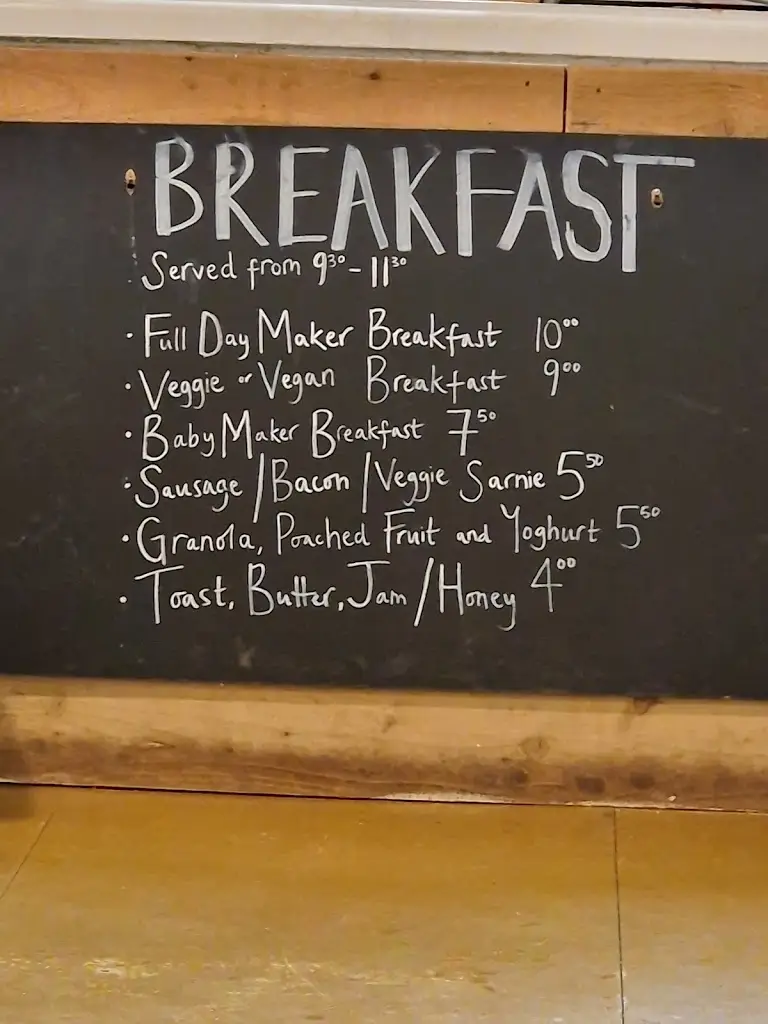 BREAKFAST
Served from 9³⁰ - 11³⁰
· Full Day Maker Breakfast 10⁰⁰
· Veggie or Vegan Breakfast 9⁰⁰
· Baby Maker Breakfast 7⁵⁰
· Sausage/Bacon/Veggie Sarnie 5⁵⁰
· Granola, Poached Fruit and Yoghurt 5⁵⁰
· Toast, Butter, Jam/Honey 4⁰⁰